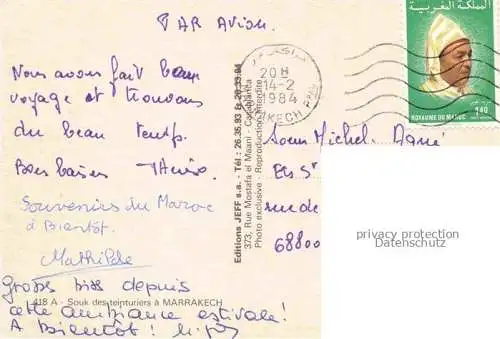 PAR AVION.
Nous avons fait beau
voyage et trouvons
du beau temps.
Bons baisers
Souvenirs du Maroc
à Bientôt.
Mathilde
Gross biss depuis
418 A - Souk des teinturiers à MARRAKECH
cette ambiance estivale!
A Bientôt!
Editions JEFF s.a. - Tél : 26.35.93 & 26.33.94
373, Rue Mostafa el Maani - Casablanca
Photo exclusive - Reproduction interdite
مراكش
20 H
14-2
1984
المملكة المغربية
1,40
ROYAUME DU MAROC
Michel
Ets
rue de
68800
privacy protection
Datenschutz